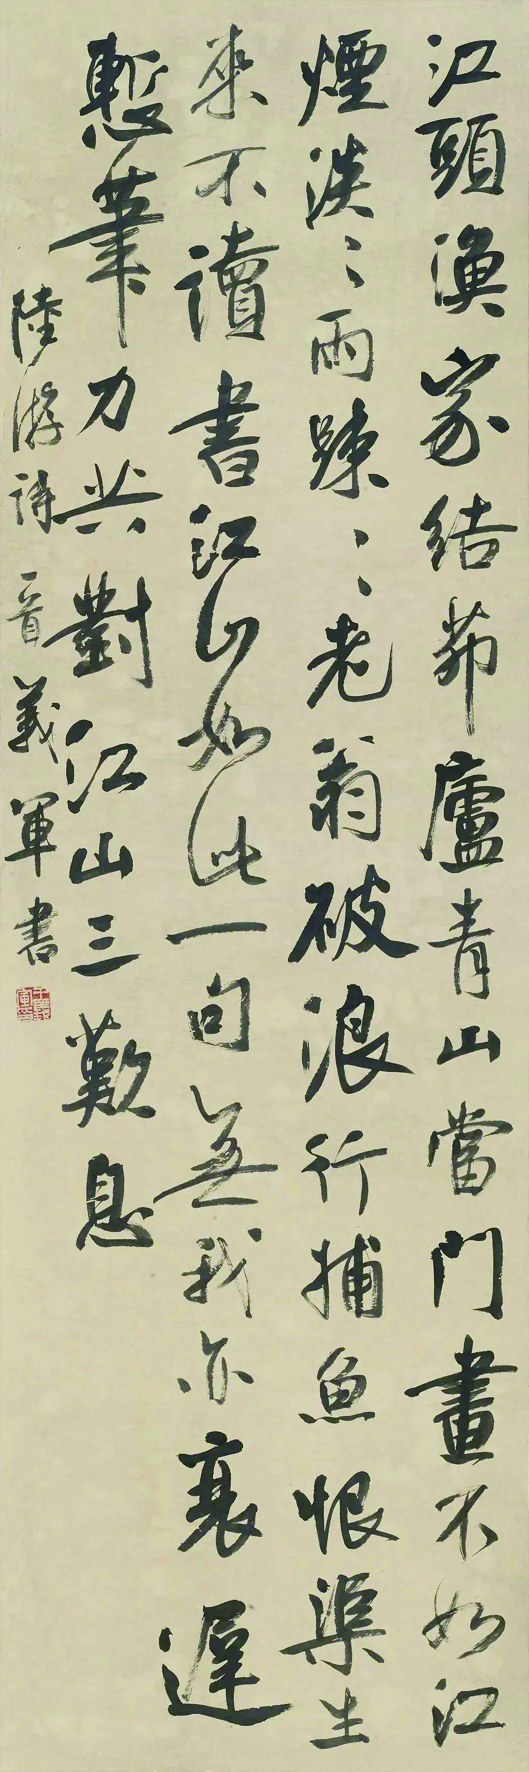 江頭漁家結茆廬青山當門畫不如江
煙淡〻雨疎〻老翁破浪行捕魚恨渠生
來不讀書江山如此一句無我亦衰遲
慙筆力共對江山三歎息
陸游詩一首義軍書